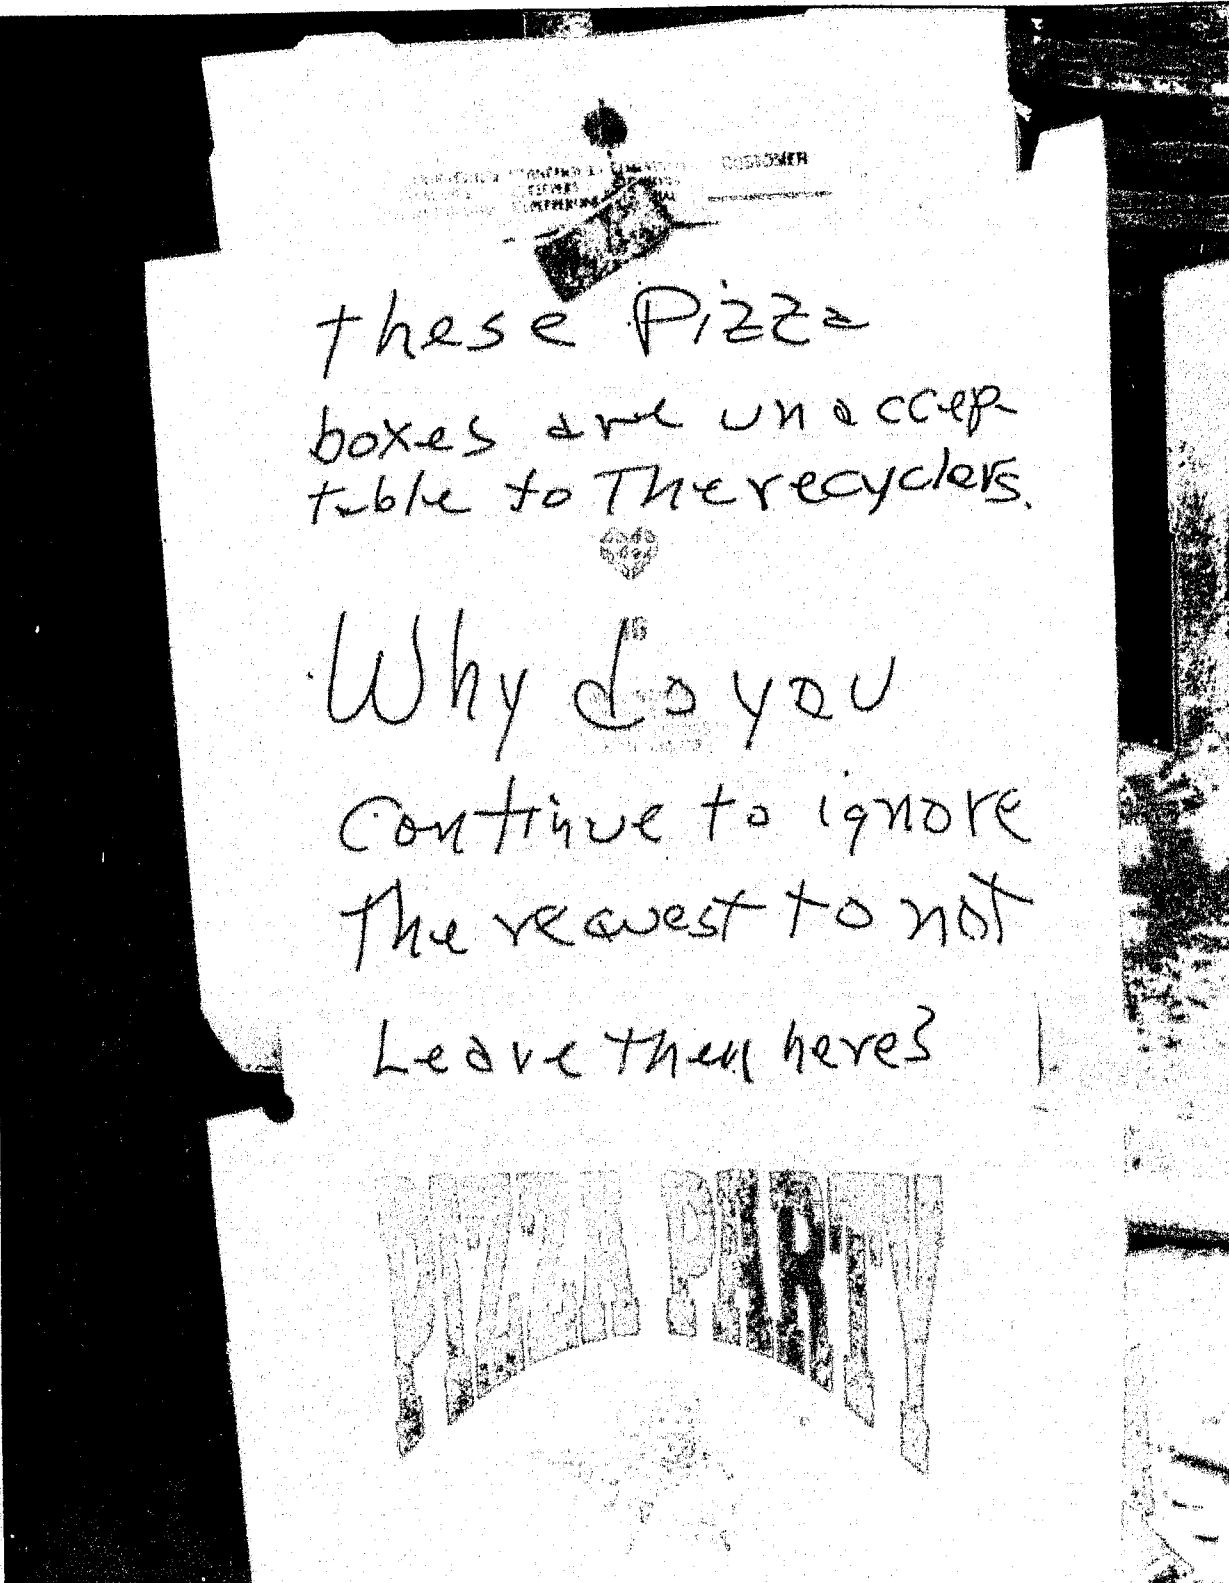 CUSTOMER
These Pizza
boxes are unaccep-
table to The recyclers.
16
Why do you
continue to ignore
The request to not
Leave them here?
PIZZA PARTY